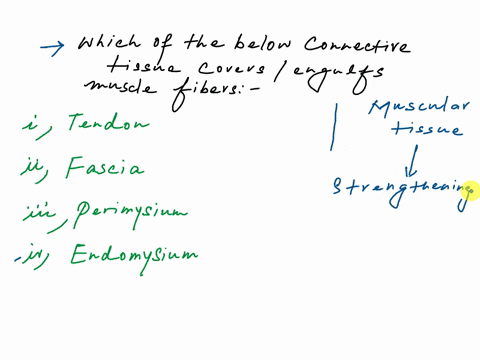 → Which of the below Connective
tissue covers / engulfs
muscle fibers:-
i, Tendon
ii, Fascia
iii, Perimysium
iv, Endomysium
Muscular
tissue
↓
Strengthening